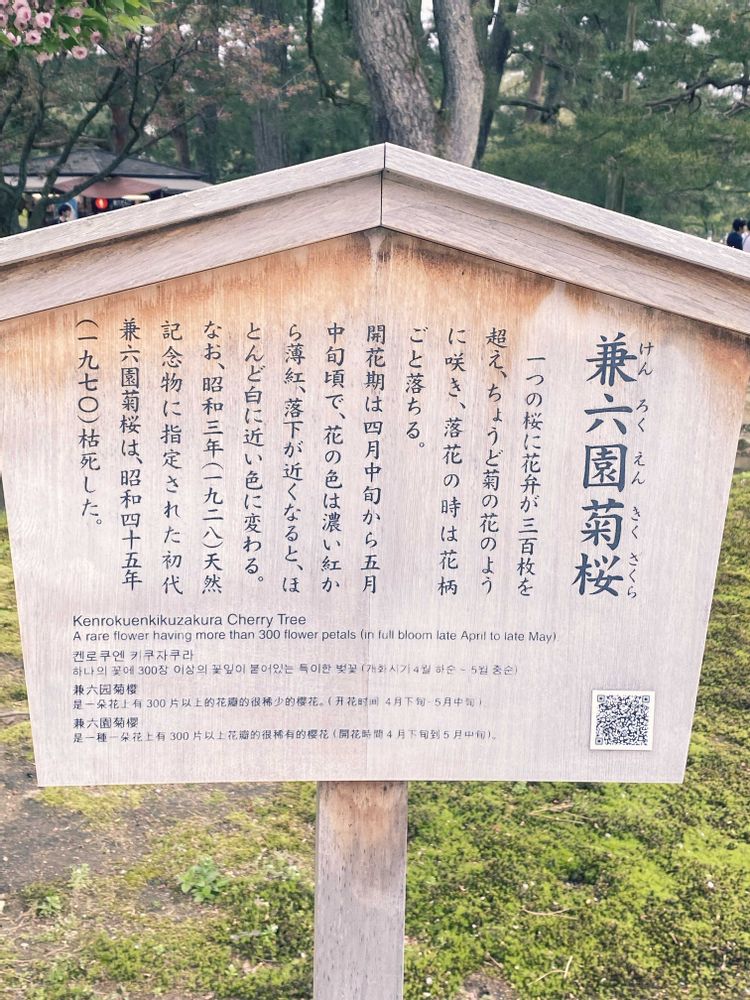 兼六園菊桜
けんろくえんきくざくら
一つの桜に花弁が三百枚を
超え、ちょうど菊の花のよう
に咲き、落花の時は花柄
ごと落ちる。
開花期は四月中旬から五月
中旬頃で、花の色は濃い紅か
ら薄紅、落下が近くなると、ほ
とんど白に近い色に変わる。
なお、昭和三年(一九二八)天然
記念物に指定された初代
兼六園菊桜は、昭和四十五年
(一九七〇)枯死した。
Kenrokuenkikuzakura Cherry Tree
A rare flower having more than 300 flower petals (in full bloom late April to late May)
켄로쿠엔 키쿠자쿠라
하나의 꽃에 300장 이상의 꽃잎이 붙어있는 특이한 벚꽃 (개화시기 4월 하순 ~ 5월 중순)
兼六园菊樱
是一朵花上有 300 片以上的花瓣的很稀少的樱花。(开花时间 4月下旬-5月中旬)
兼六園菊櫻
是一種一朵花上有 300 片以上花瓣的很稀有的櫻花 (開花時間 4 月下旬到 5 月中旬)。